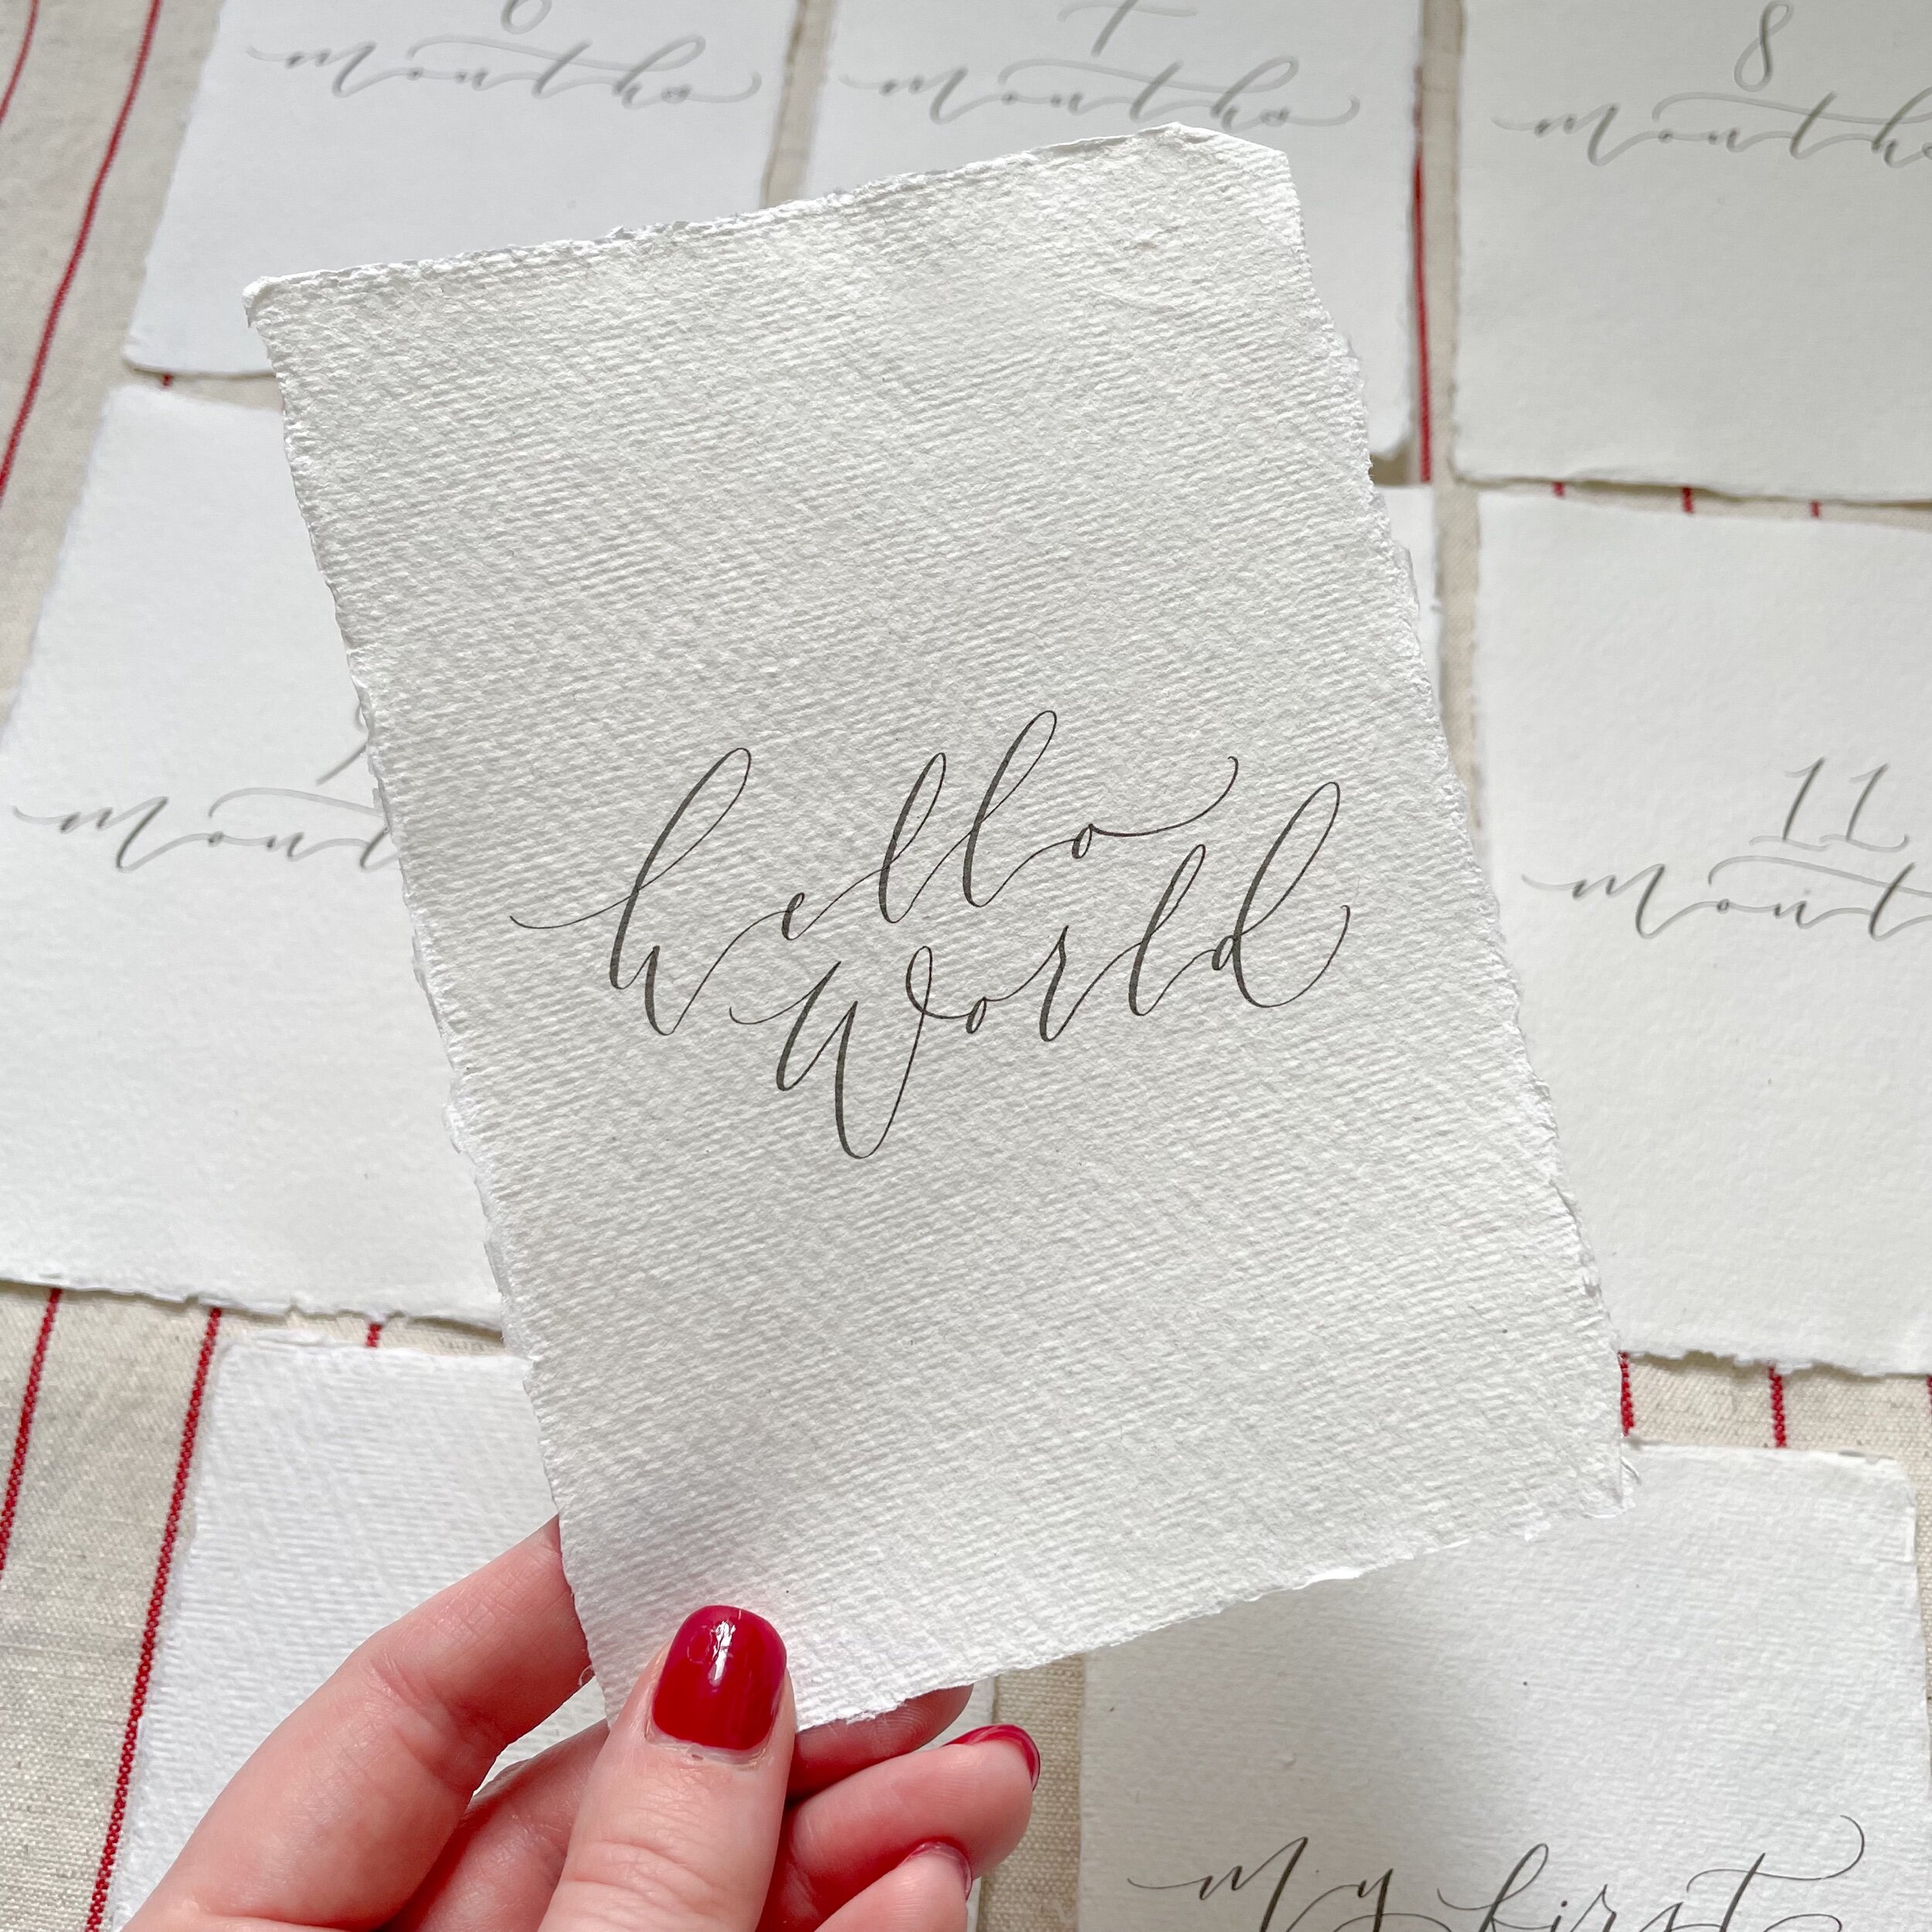 6
months
7
months
8
months
hello
world
11
my first